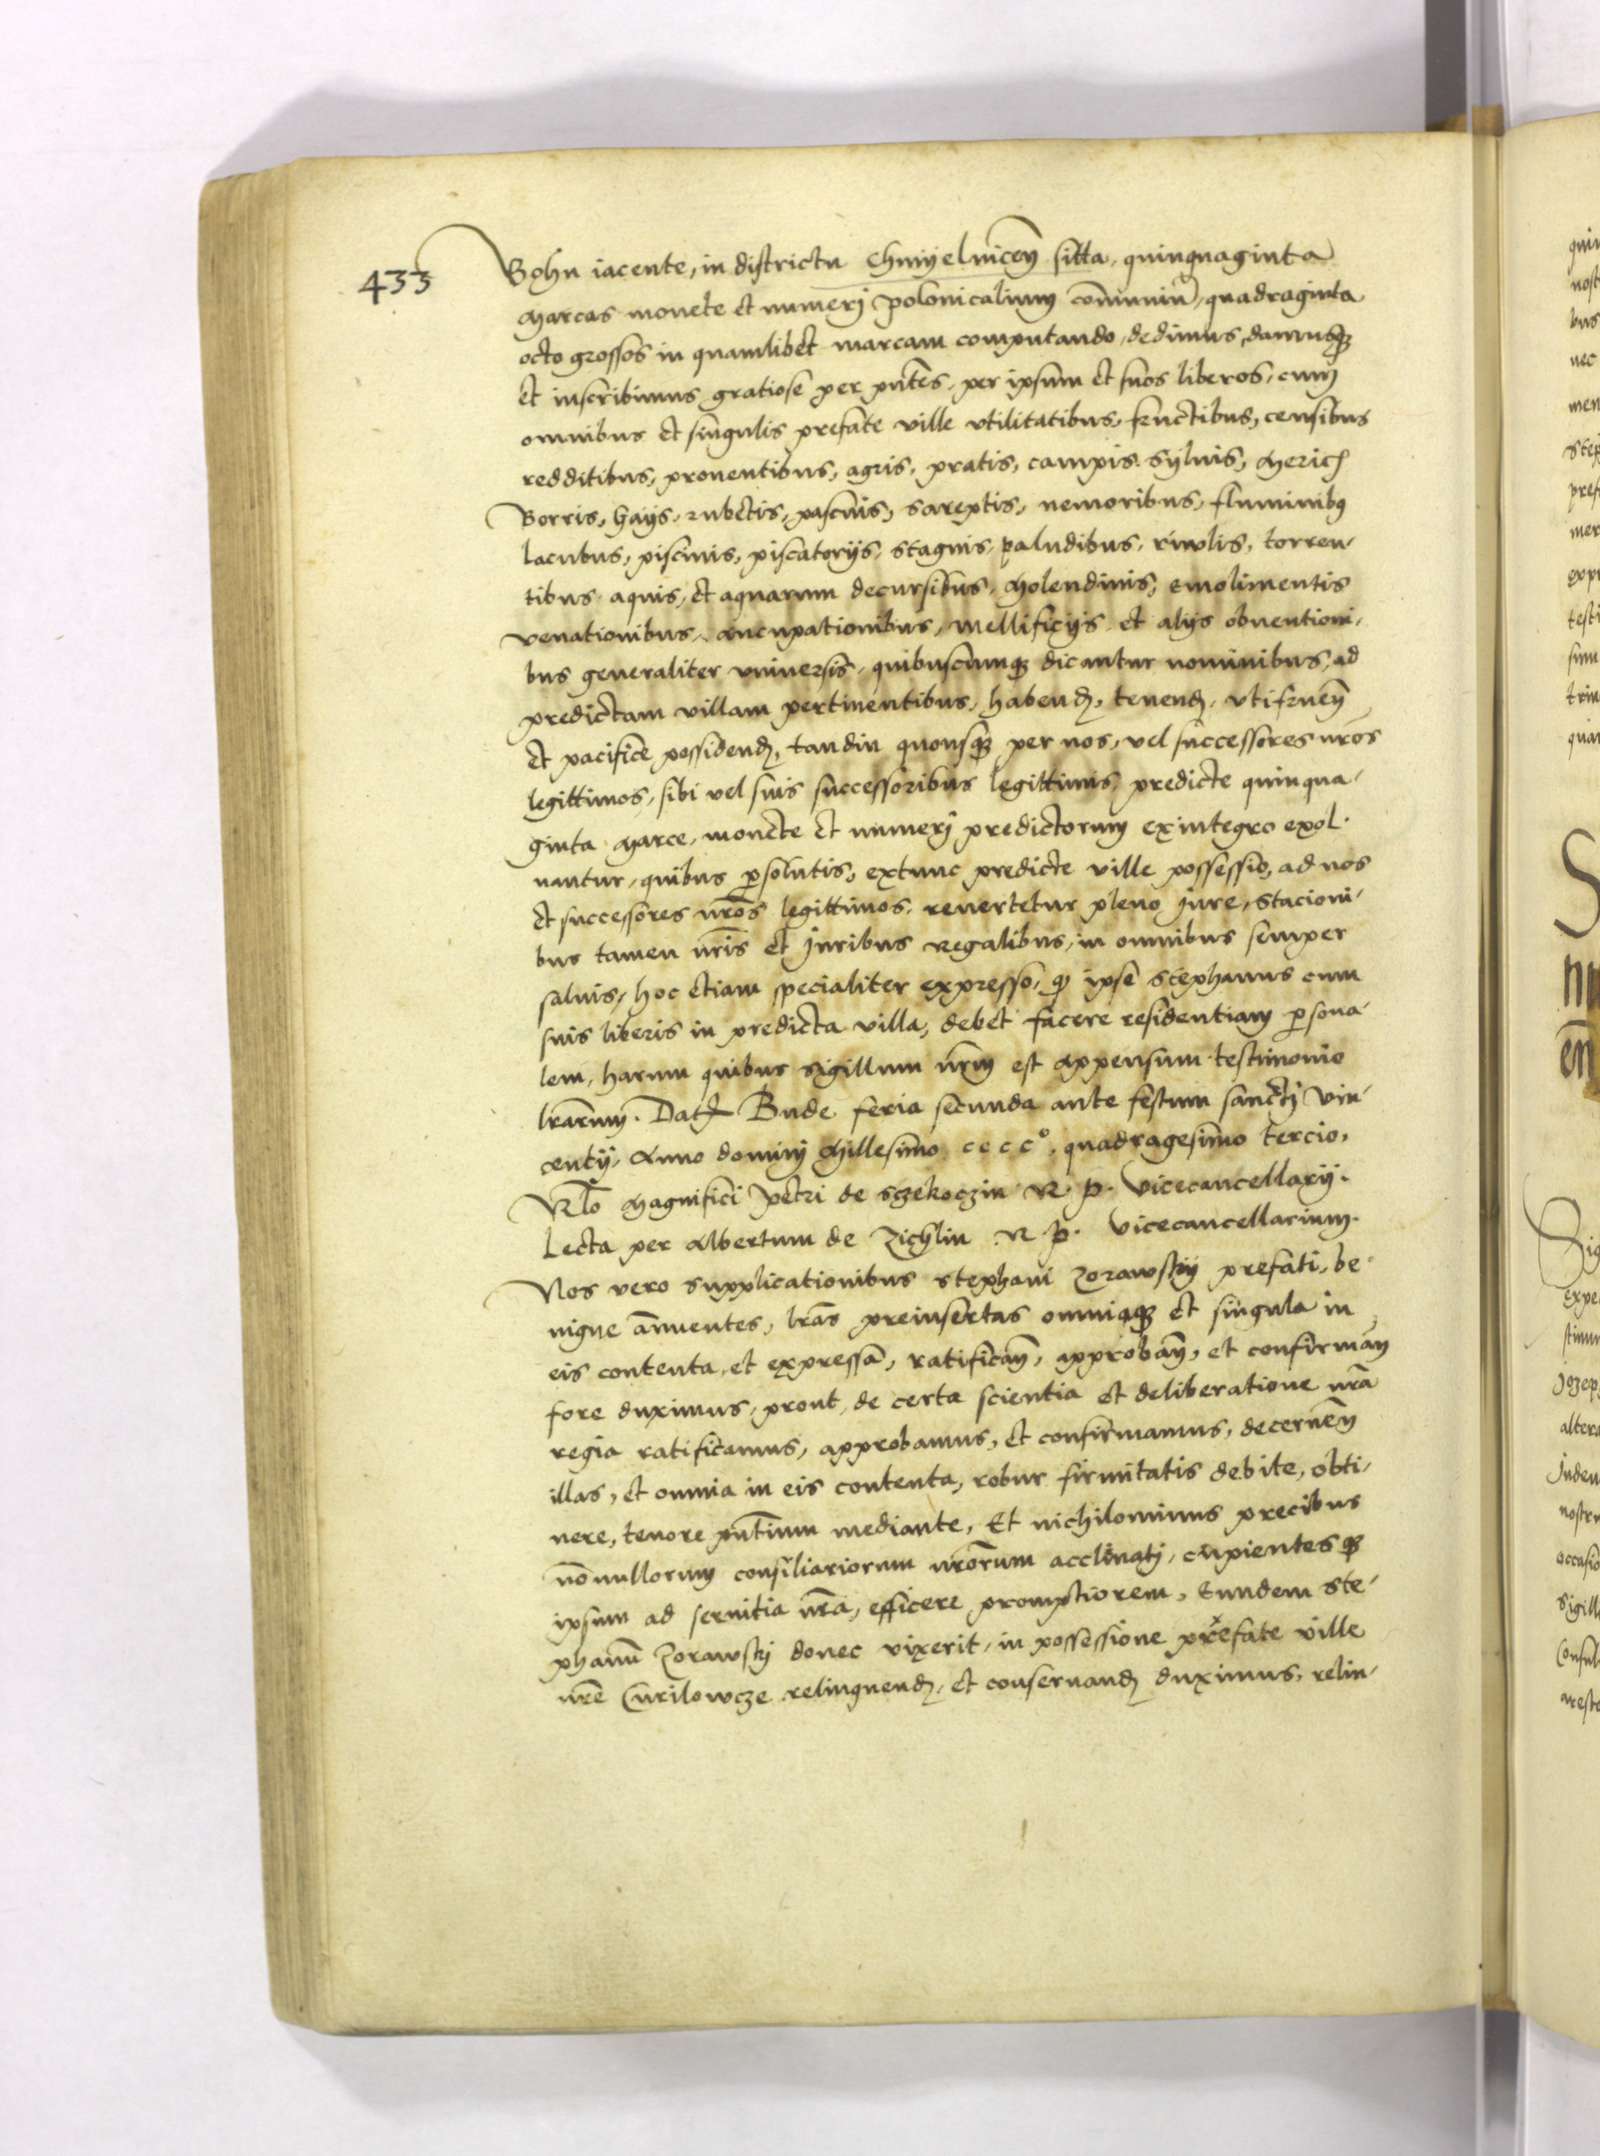 433
Bohu iacente, in districtu Chmyelnicen̄ sitta, quinquaginta
Marcas monete et numerj polonicalium com̄uniu͂, quadraginta
octo grossos in quamlibet marcam computando, dedimus, damusq₃
et inscribimus gratiose per pn̄tes, per ipsum et suos liberos, cum
omnibus et singulis prefate ville vtilitatibus, fructibus, censibus
redditibus, prouentibus, agris, pratis, campis, syluis, Mericꝭ
Borris, hays, rubetis, pascuis, sareptis, nemoribus, fluminibꝰ
Lacubus, piscinis, piscatorijs, stagnis, paludibus, riuolis, torren-
tibus aquis, et aquarum decursibus, Molendinis, emolimentis
venationibus, Aucupationibus, mellificijs et alijs obuentioni-
bus generaliter vniuersis, quibuscumq₃ dicantur nominibus, ad
predictam villam pertinentibus, habend̄, tenend̄, vtifruen̄
et pacifice possidend̄, tandiu quousq₃ per nos, vel successores nr̄os
legittimos, sibi vel suis successoribus legittimis, predicte quinqua-
ginta Marce, monete et numerj predictorum exintegro exol-
uantur, quibus ꝑsolutis, extunc predicte ville possessio, ad nos
et successores nr̄os legittimos, reuertetur pleno Jure, stacioni-
bus tamen nr̄is et Juribus regalibus, in omnibus semper
saluis, hoc etiam specialiter expresso, qꝫ ipse Stephanus cum
suis liberis in predicta villa, debet facere residentiam ꝑsona-
lem, harum quibus sigillum nr̄m est Appensum testimonio
lr̄arum. Datꝭ Bude feria secunda ante festum sanctj Vin-
centij, Anno dominj Millesimo cccc°. quadragesimo tercio,
Rl̄o Magnifici Petri de Sczekoczin R. P. Vicecancellarij.
Lecta per Albertum de Zichlin R P. Vicecancellarium.
Nos vero supplicationibus Stephani Zorawskij prefati, be-
nigne an̄uentes, lr̄as preinsertas omniaq₃ et singula in
eis contenta, et expressa, ratifican̄, approban̄, et confirman̄
fore duximus, prout, de certa scientia et deliberatione nr̄a
regia ratificamus, approbamus, et confirmamus, decernen̄
illas, et omnia in eis contenta, robur firmitatis debite, obti-
nere, tenore pn̄tium mediante, Et nichilominus precibus
nōnullorum consiliariorum nr̄orum acclinatj, cupientesq₃
ipsum ad seruitia nr̄a, efficere promptiorem, Eundem Ste-
phanū Zorawskj donec vixerit, in possessione prefate ville
nr̄e Curilowcze relinquend̄, et conseruand̄ duximus, relin-